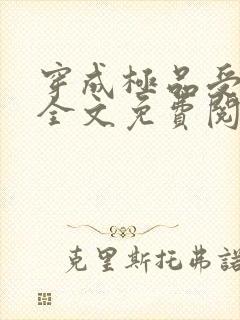 穿成極品受
全文免費閱
克里斯托弗諾